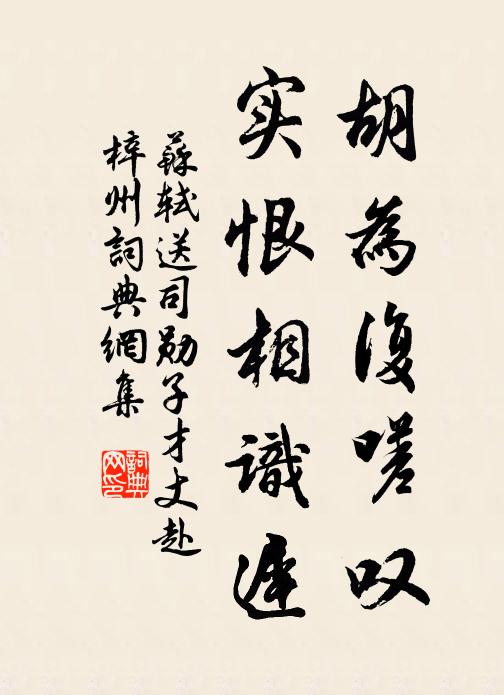 胡為復嗟叹
实恨相識遲
蘇轼送司勋子才丈赴
梓州詞典網集
詞典网印